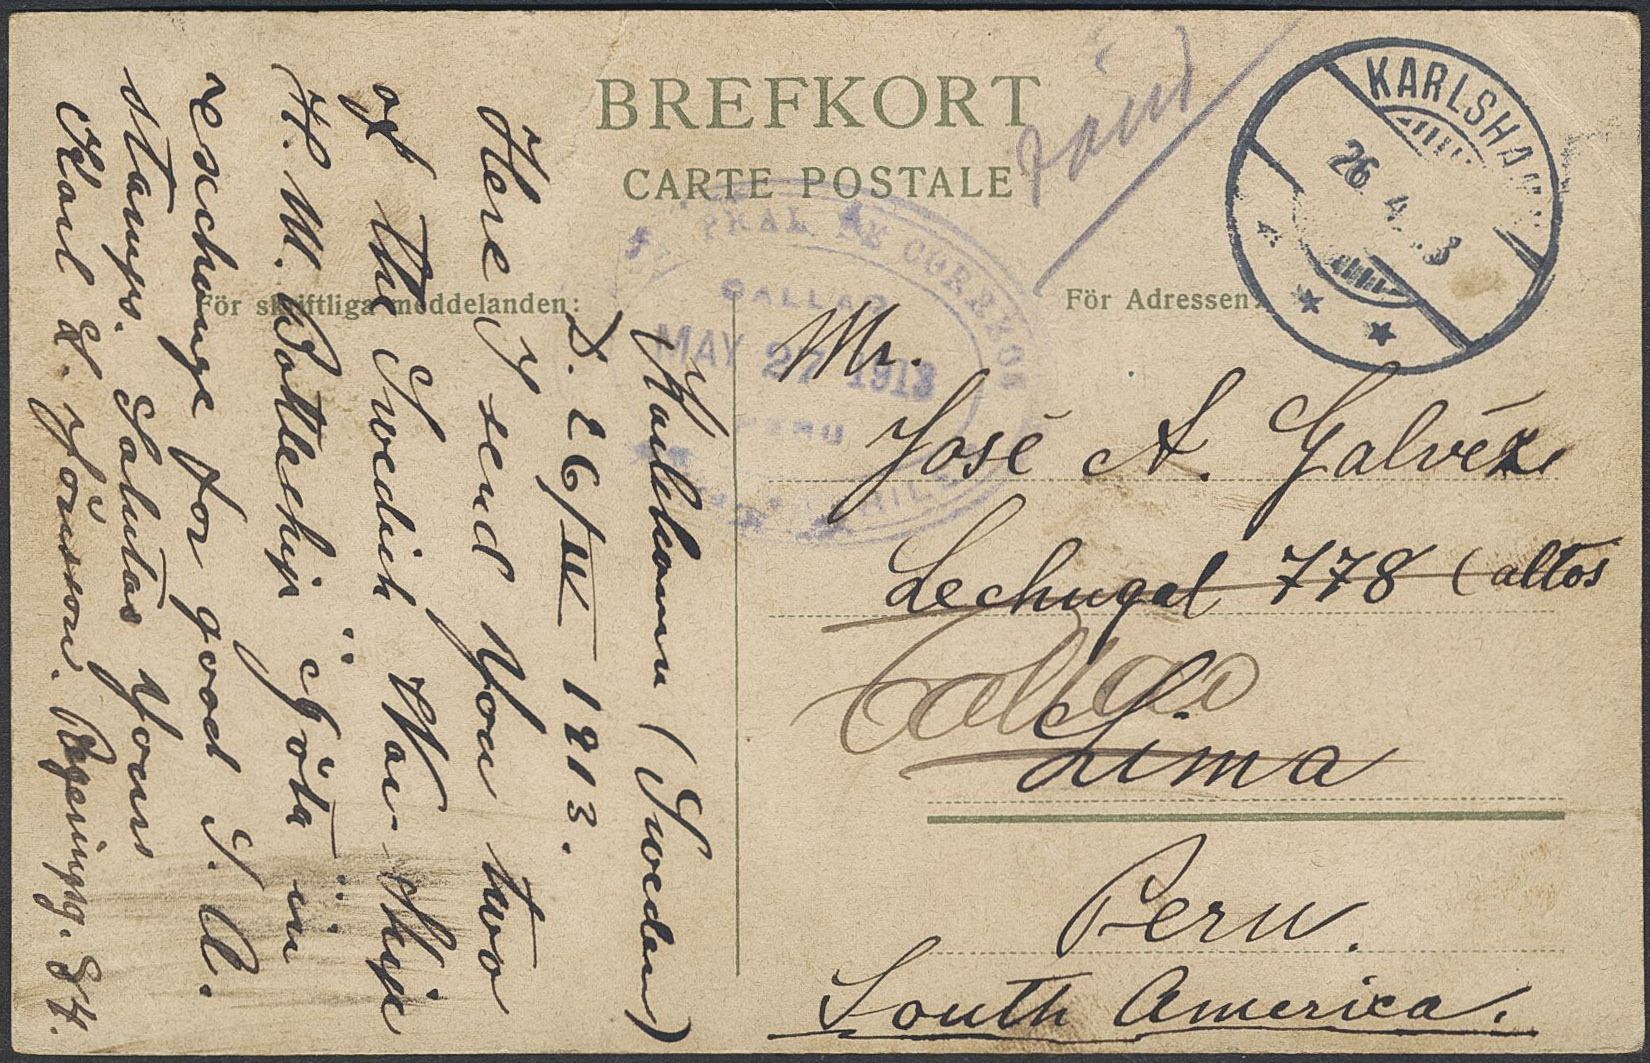 BREFKORT
CARTE POSTALE
För skriftliga meddelanden:
För Adressen:
KARLSHAMN
26. 4. 13
CORREOS
CALLAO
MAY 27 1913
PERU
Karlshamn (Sweden)
D. 26/IV 1913.
Here I send You two
of the Swedish War-Ship
H. M. Battleship "Göta" in
eschange for good S. A.
stamps. Salutas Yours
Karl E. Jönsson. Regeringsg. 84.
Mr.
José A. Galvéz
Lechugal 778 (altos
Callao
Lima
Peru.
South America.